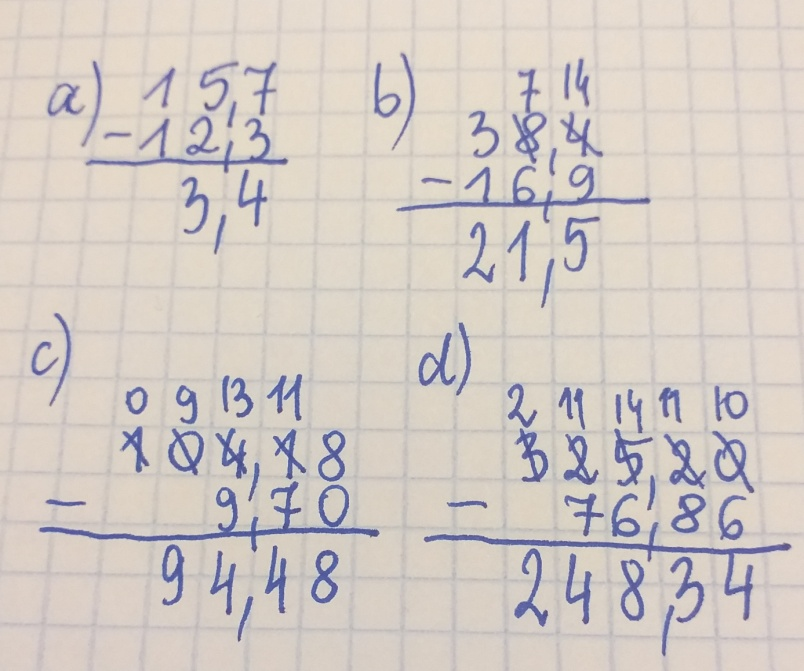 a) 15,7
-12,3
3,4
b) 7 14
38,4
-16,9
21,5
c)
0 9 13 11
104,18
- 9,70
94,48
d)
2 11 14 11 10
325,20
- 76,86
248,34